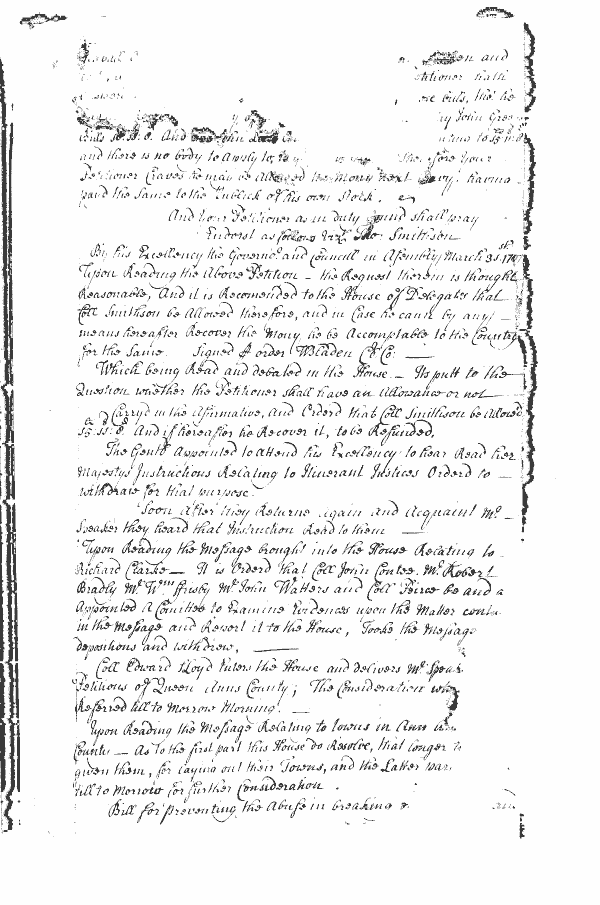 and
etitioner hath
ore bills, the he
by John Gree
And John
and there is no body to Apply to, therefore your
Petitioner Craves he may be Allowed the Money next Levy, having
paid the Same to the Publick of his own Stock,
And your Petitioner as in duty bound shall pray
Endorst as follows Vizt. Tho: Smithson
By his Excellency the Governor and Councill in Assembly March 31st. 1707
Upon Reading the Above Petition – the Request therein is thought
Reasonable, And it is Recomended to the House of Delegates that
Coll Smithson be Allowed therefore, and in Case he can by any
means hereafter Recover the Mony he be Accomptable to the Country
for the Same. Signed p order WBladen Cl Co: —
Which being Read and debated in the House — Its putt to the
Question whether the Petitioner shall have an Allowance or not
Carryd in the Affirmative, And Orderd that Coll Smithson be Allowed
And if hereafter he Recover it, to be Refunded.
The Gentl Appointed to Attend his Excellency to hear Read her
Majestys Instructions Relating to Itinerant Justices Orderd to —
withdraw for that purpose.
Soon After they Returne Again and Acquaint Mr —
Speaker they heard that Instruction Read to them —
Upon Reading the Message brought into the House Relating to
Richard Clarke — It is Orderd that Coll John Contee, Mr. Robert
Bradly Mr. Wm. Frisby Mr. John Watters and Coll Peirce be and a
Appointed A Comittee to Examine Evidences upon the Matter conta
in the Message and Report it to the House, Tooke the Message
depositions and withdrew, —
Coll Edward Lloyd Enters the House and delivers Mr. Speak
Petitions of Queen Anns County; The Consideration
Referred till to Morrow Morning. —
Upon Reading the Message Relating to Towns in Ann
County — As to the first part this House do Resolve, that longer t
given them, for laying out their Towns, and the Latter par
till to Morrow for further Consideration.
Bill for preventing the Abuse in breaking